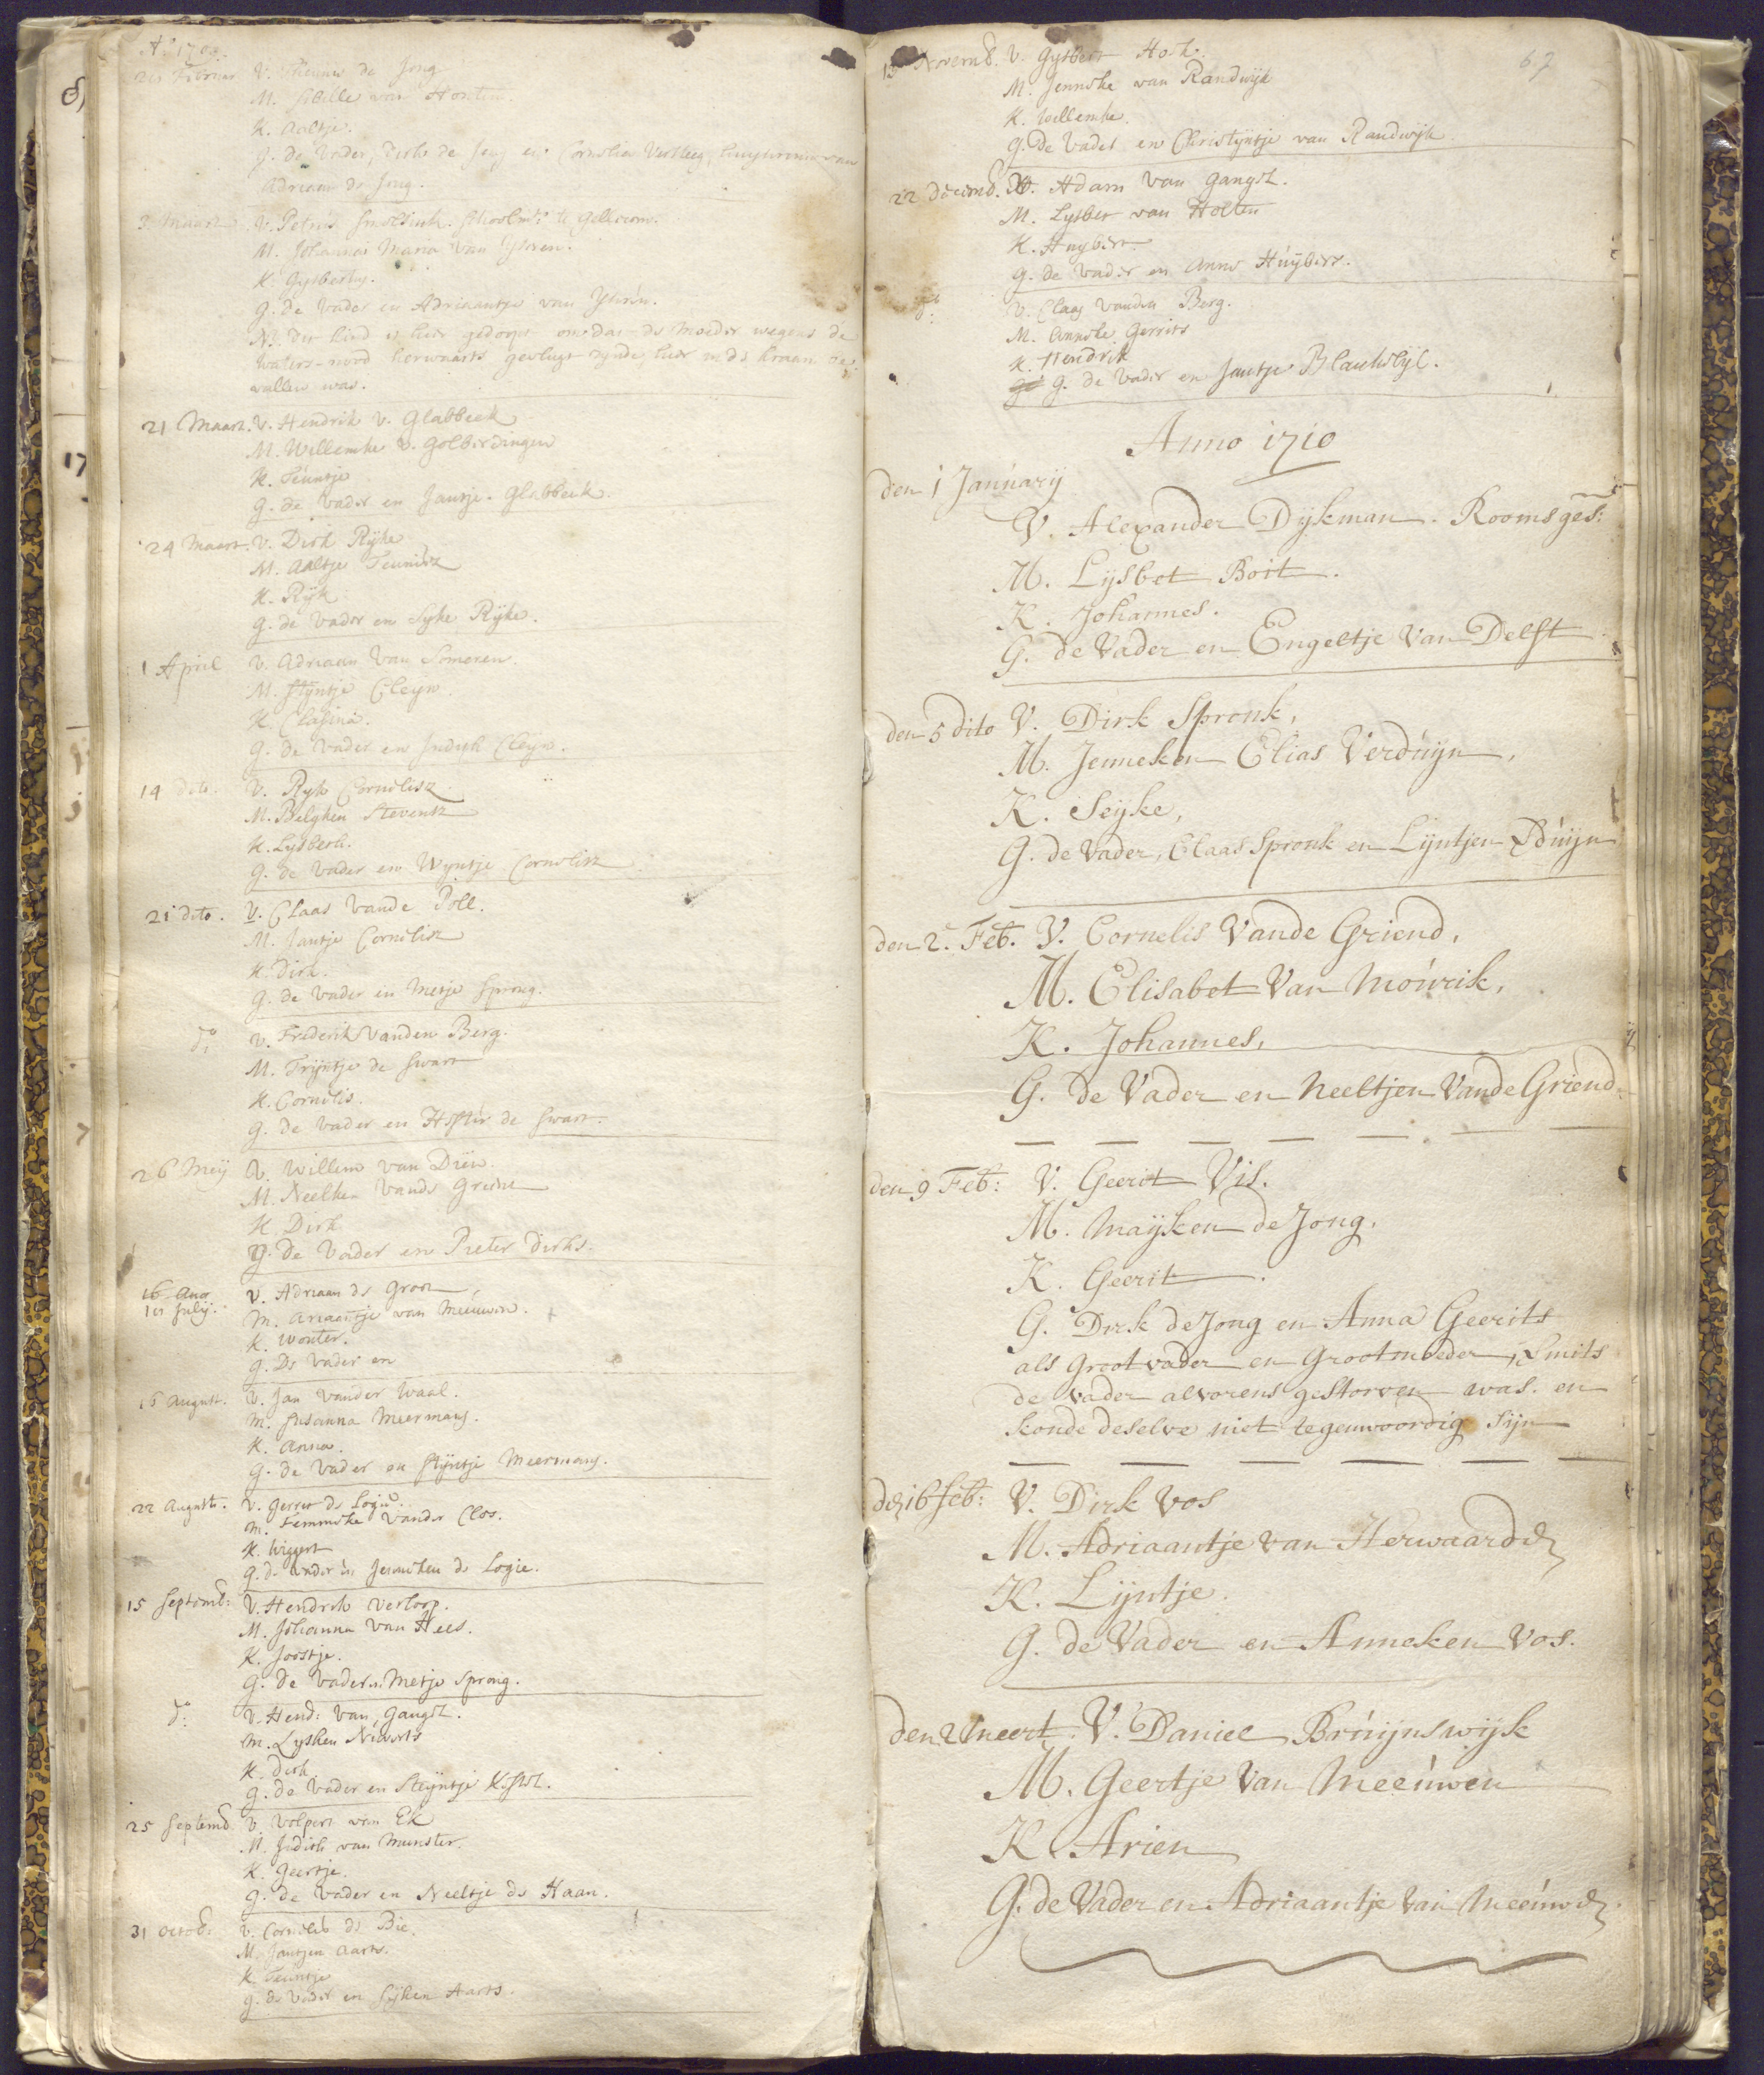 Aº 1709.
21 Februar V. Theunis de Jong
M. Sibille van Honten
K. Aaltje.
G. de Vader, Dirk de Jong en Cornelia Versteeg, huysvrouw van
Adriaan de Jong.
3 Maart V. Petrus Smeltink. Schoolmr. te Gellicom.
M. Johanna Maria van Ysseren.
K. Gysbertus.
G. de Vader en Adriaantje van
NB. dit kind is hier gedoopt omdat de Moeder wegens de
Waters-nood herwaarts gevlugt zynde, hier in de Kraam be-
vallen was.
21 Maart. V. Hendrik v. Glabbeek
M. Willemke v. Golberdingen
K. Teuntje
G. de Vader en Jantje Glabbeek.
24 Maart. V. Dirk Rijke
M. Aaltje Teunisz
K. Rijk
G. de Vader en Sijke Rijke.
1 April V. Adriaan van Someren.
M. Stijntje Cleyn.
K. Clasina.
G. de Vader en Judigh Cleijn.
14 dito. V. Ryk Cornelisz
M. Belghen Stevensz
K. Lysbeth.
G. de Vader en Wyntje Cornelisz
21 dito. V. Claas Vande Poll.
M. Jantje Cornelisz
K. Dirk.
G. de Vader en Metje Sprong.
dº V. Frederik Vanden Berg.
M. Trijntje de Swart
K. Cornelis.
G. de Vader en Hester de Swart.
26 Meij V. Willem van Dien.
M. Neelken Vande
K Dirk
G. De Vader en Pieter Dirks.
16 Aug
in July. V. Adriaan de Groot
M. Ariaentje van Meeuwen.
K. Wouter.
G. De Vader en
16 August. V. Jan Vander Waal.
M. Susanna Meermans.
K. Anna.
G. de Vader en Stijntje Meermans.
22 August. V. Gerrit de Logie.
M. Femmeke Vander Cloo.
K. Wiggert
G. de Vader en Jenneken de Logie.
15 Septemb: V. Hendrik Verloop.
M. Johanna van Hees.
K. Joostje.
G. de Vader en Metje Sprong.
dº V. Hend: van Gangel.
M. Lysken Neverts
K. Dirk
G. de Vader en Steijntje
25 Septemb V. Volpert van Ek
M. Judith van Munster.
K. Geertje.
G. de Vader en Neeltje de Haan.
31 Octob: V. Cornelis de Bie.
M. Jantjen Aarts.
K. Teuntje
G. de Vader en Sijken Aarts.
67
13 Novemb. V. Gysbert Hoek.
M. Jenneke van Randwijk
K. Willemke.
G. De Vader en Christijntje van Randwijk
22 Decemb. V. Adam van Gangel.
M. Lysbet van Holten
K. Huybert.
G. de Vader en Anna Huijbers.
dº V. Claas vanden Berg.
M. Anneke Gerrits
K. Hendrik
G. de Vader en Jantje Blankebijl.
Anno 1710
den 1 Janúarij
V. Alexander Dijkman. Rooms ges:
M. Lijsbet Boit.
K. Johannes.
G. de Vader en Engeltje van Delft
den 5 dito V. Dirk Spronk,
M. Jenneken Elias Verdúijn,
K. Seijke,
G. de Vader, Claas Spronk en Lijntjen Vdúijn
den 2. Feb. V. Cornelis Vande Griend,
M. Elisabet Van Moúrik,
K. Johannes,
G. de Vader en Neeltjen Vande Griend.
den 9 Feb: V. Geerit Vis.
M. Maijken de Jong.
K. Geerit.
G. Dirk de Jong en Anna Geerits
als Grootvader en Grootmoeder, Smits
de Vader alvorens gestorven was. en
konde deselve niet tegenwoordig Sijn
den 16 feb: V. Dirk Vos
M. Adriaantje van Herwaarden
K. Lijntje.
G. de Vader en Anneken Vos.
den 2 Meert V. Daniel Brúijnswijk
M. Geertje Van Meeúwen
K Arien
G. de Vader en Adriaantje van Meeúwen.